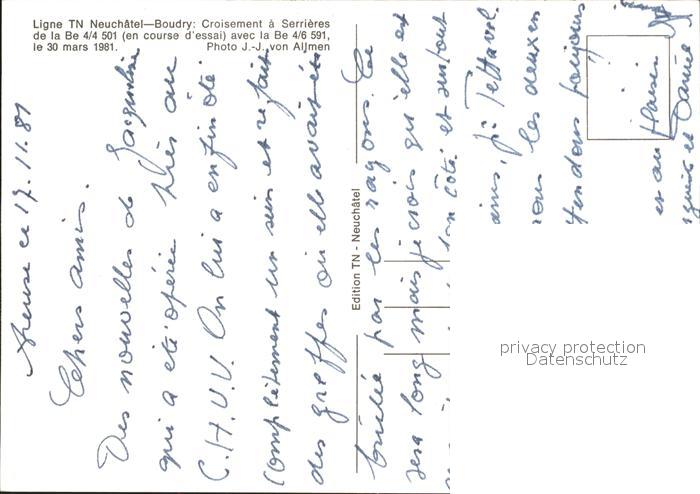 Ligne TN Neuchâtel—Boudry: Croisement à Serrières
de la Be 4/4 501 (en course d'essai) avec la Be 4/6 591,
le 30 mars 1981. Photo J.-J. von Allmen
Edition TN - Neuchâtel
Areuse ce 17.11.81
Chers amis.
Des nouvelles de Jaqueline
qui a été opérée très au
C.H.U.V. On lui a enfin ôté
complètement un sein et refait
des greffes où elle avait été
brûlée par les rayons. Ce
sera long mais je crois qu'elle est
son côté et surtout
les deux en
tendons toujours
et au plaisir
et Daniel
privacy protection
Datenschutz